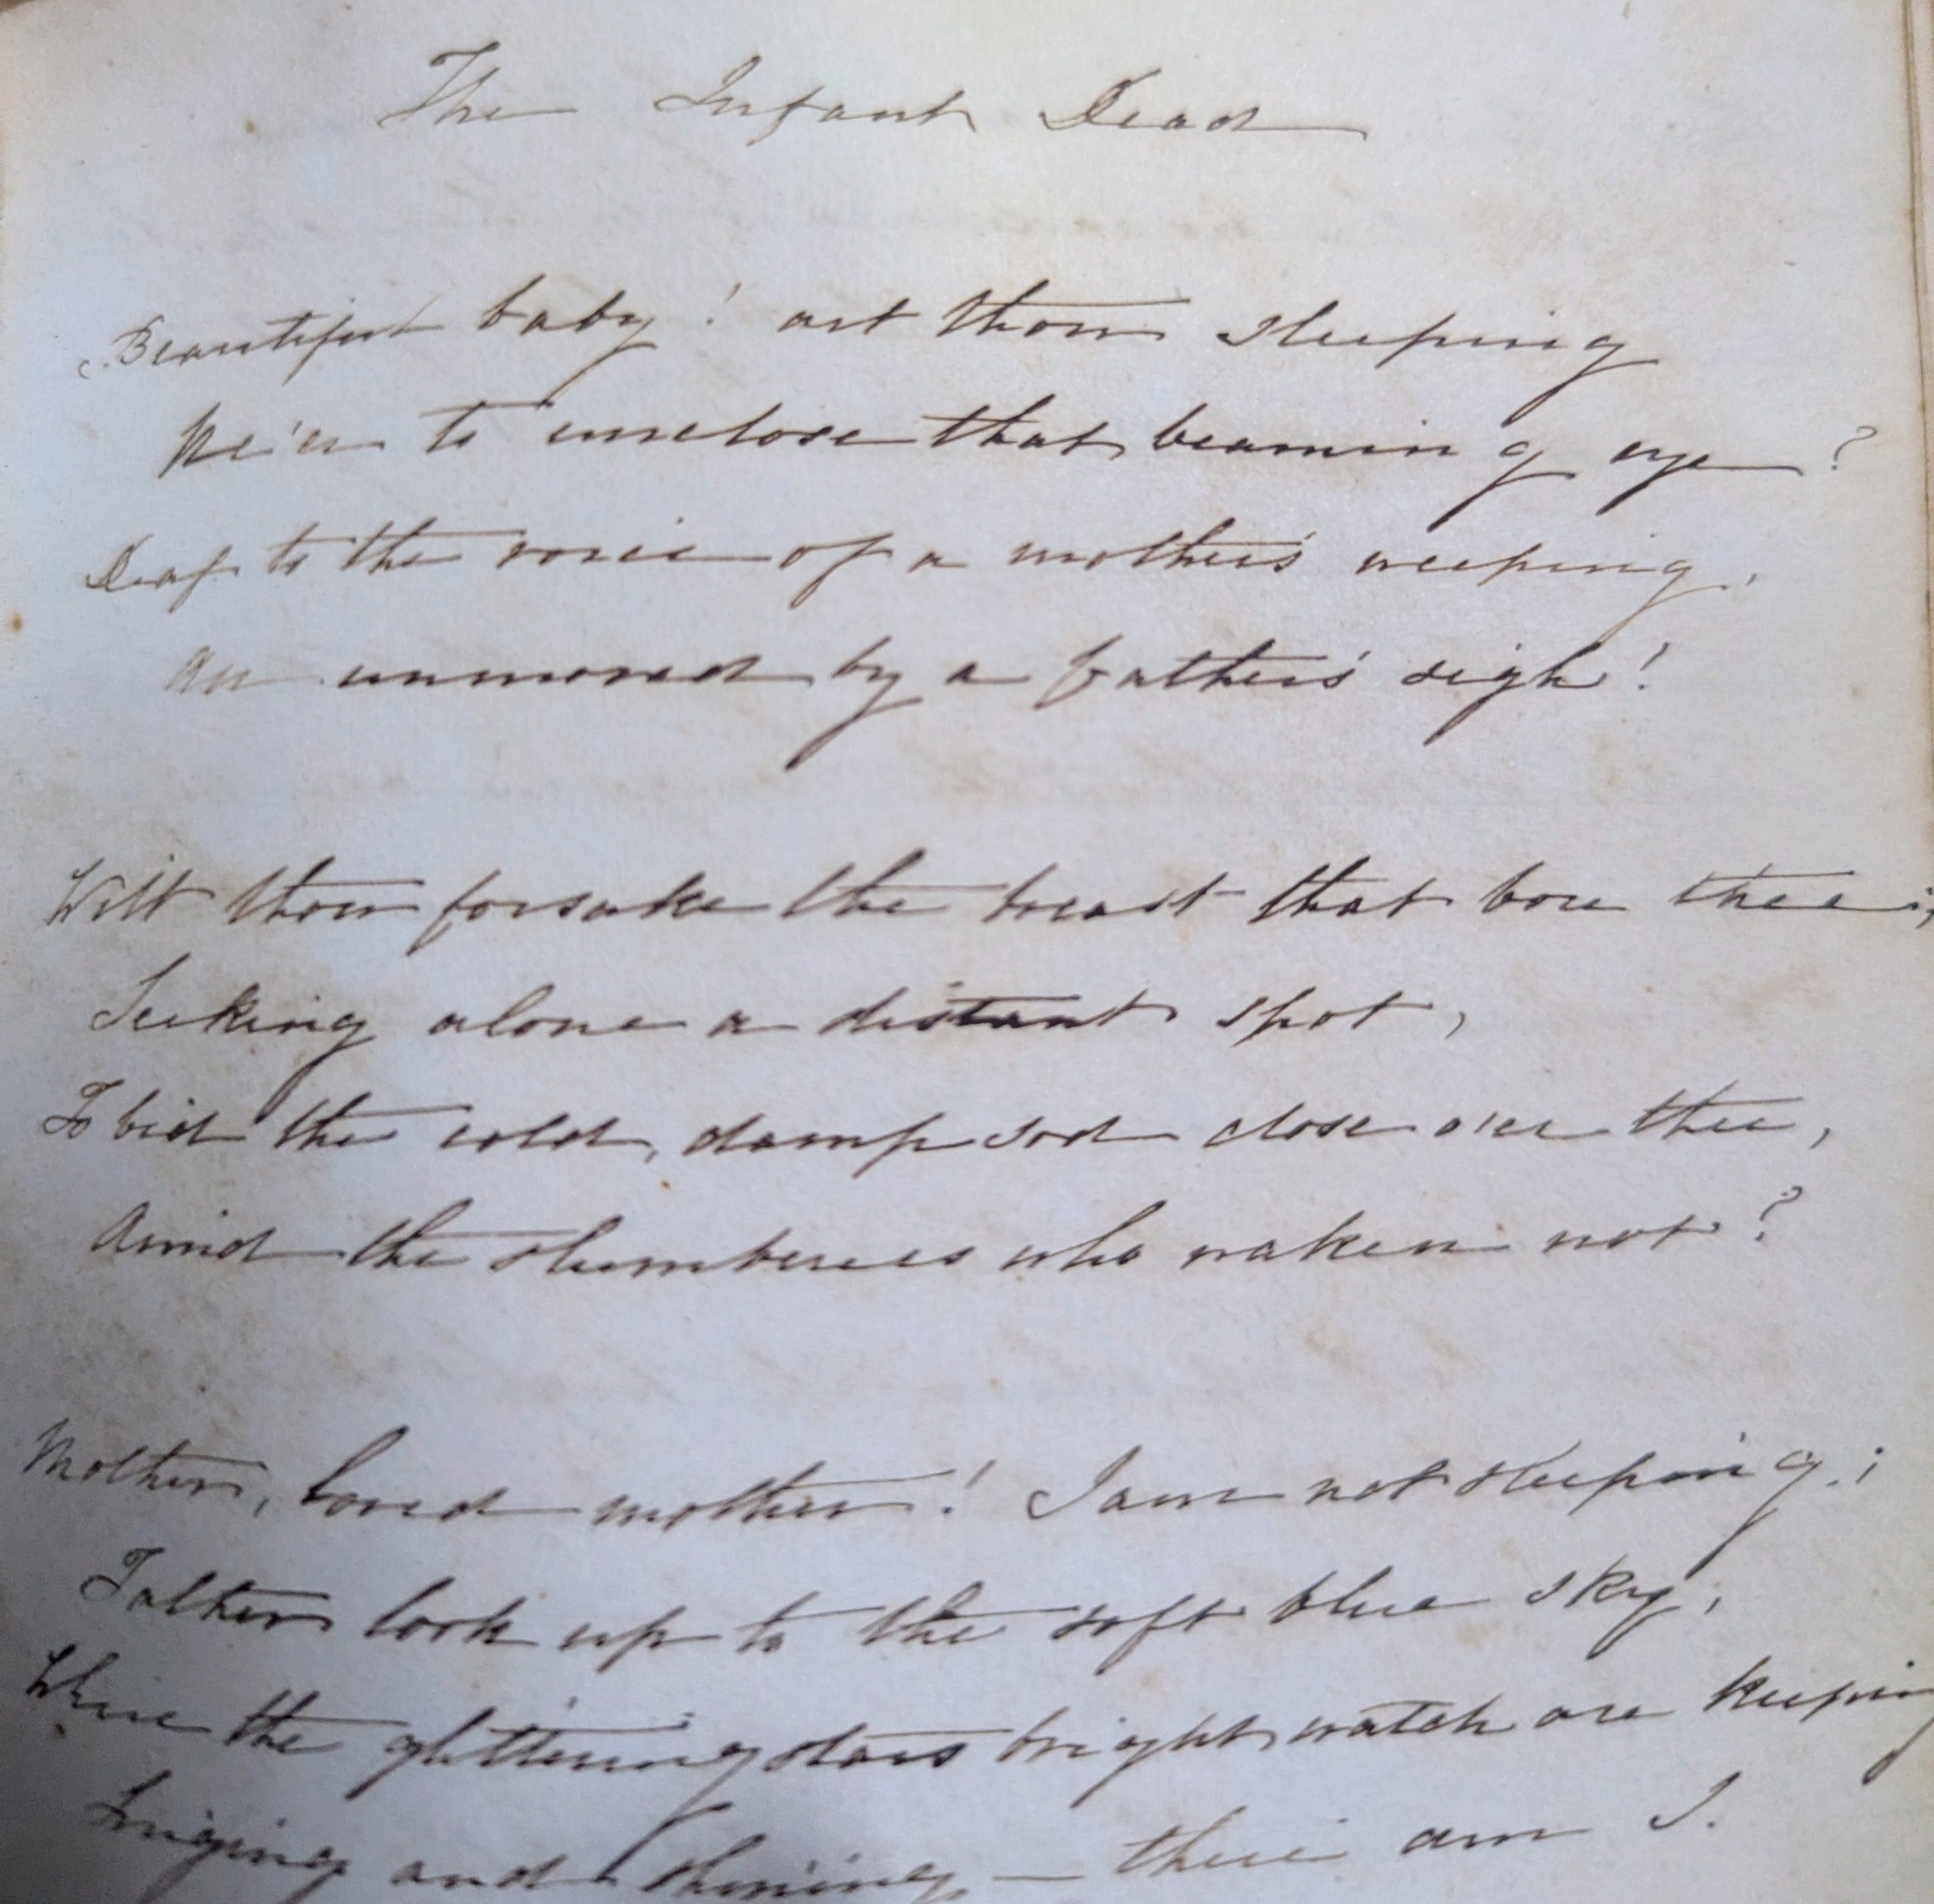 The Infant Dead
Beautiful baby! art thou sleeping
Ne'er to unclose that beaming eye?
Deaf to the voice of a mother's weeping,
All unmoved by a father's sigh!
Wilt thou forsake the breast that bore thee;
Seeking alone a distant spot,
To bid the cold, damp sod close o'er thee,
Amid the slumberers who waken not?
Mother, loved mother! I am not sleeping;
Father look up to the soft blue sky,
Where the glittering stars bright watch are keeping
Singing and shining — there am I.